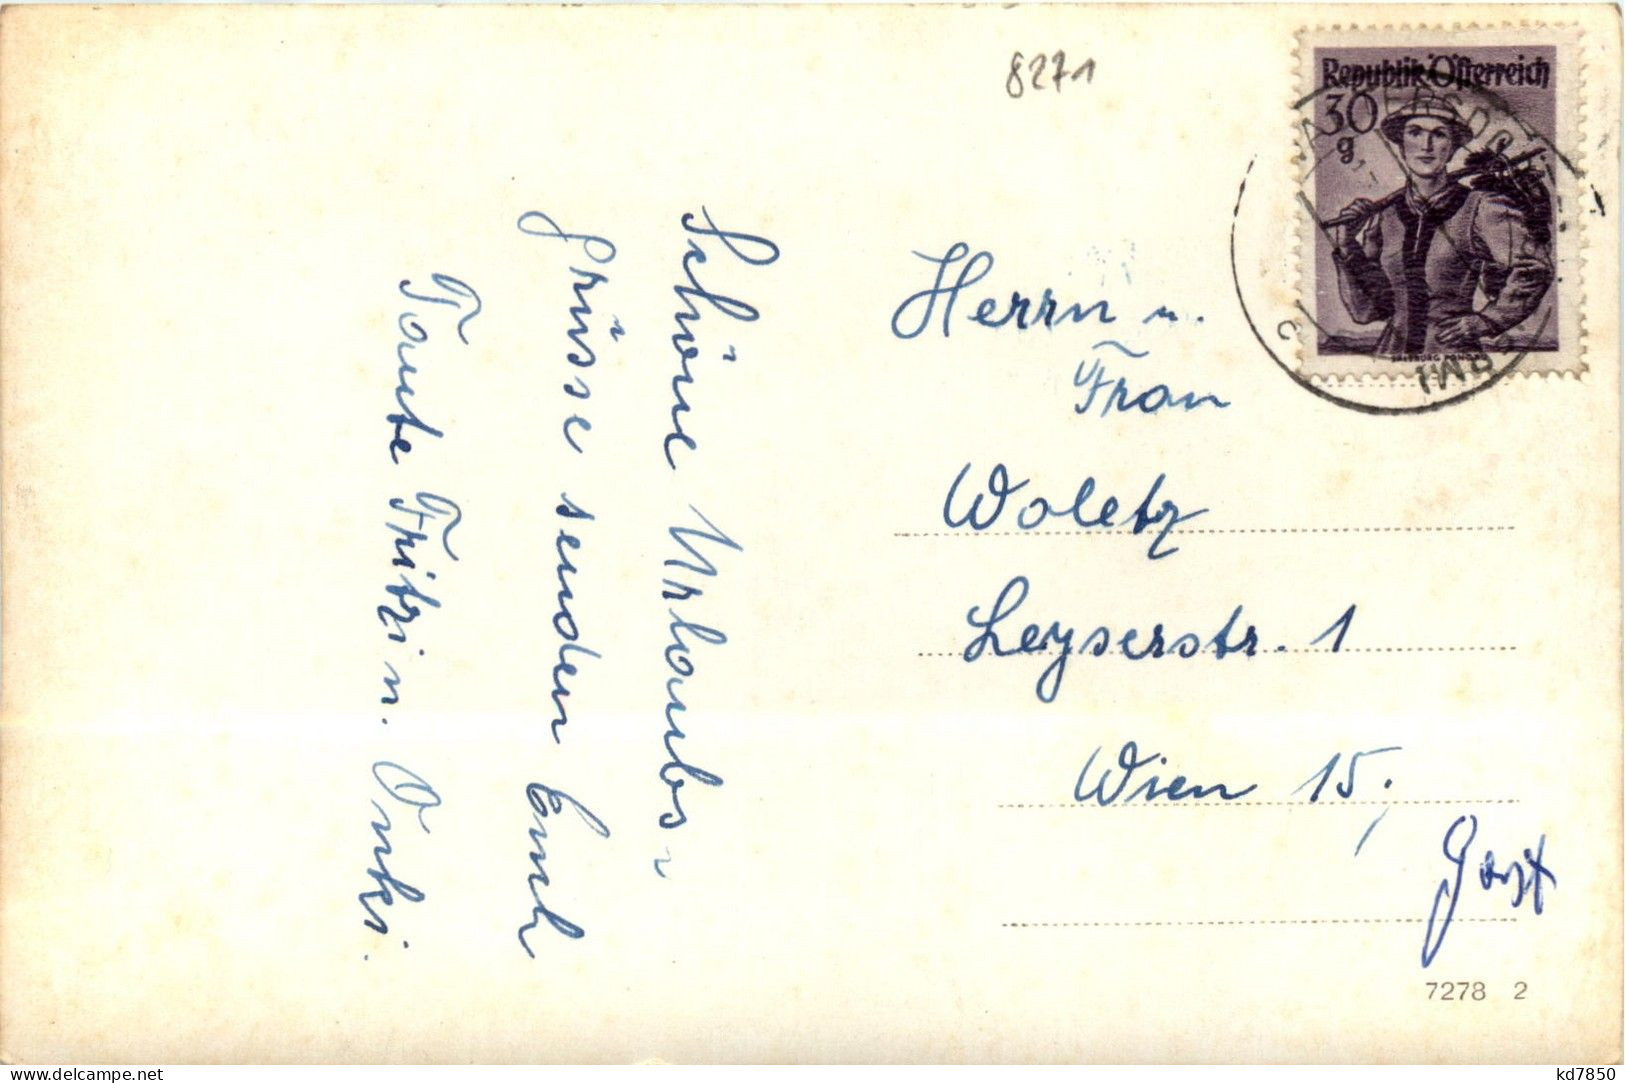 8271
Republik Österreich
30
g
Schöne Urlaubs-
grüsse senden Euch
Tante Fritzi u. Onki.
Herrn u.
Frau
Woletz
Leyserstr. 1
Wien 15,
7278 2
www.delcampe.net
kd7850